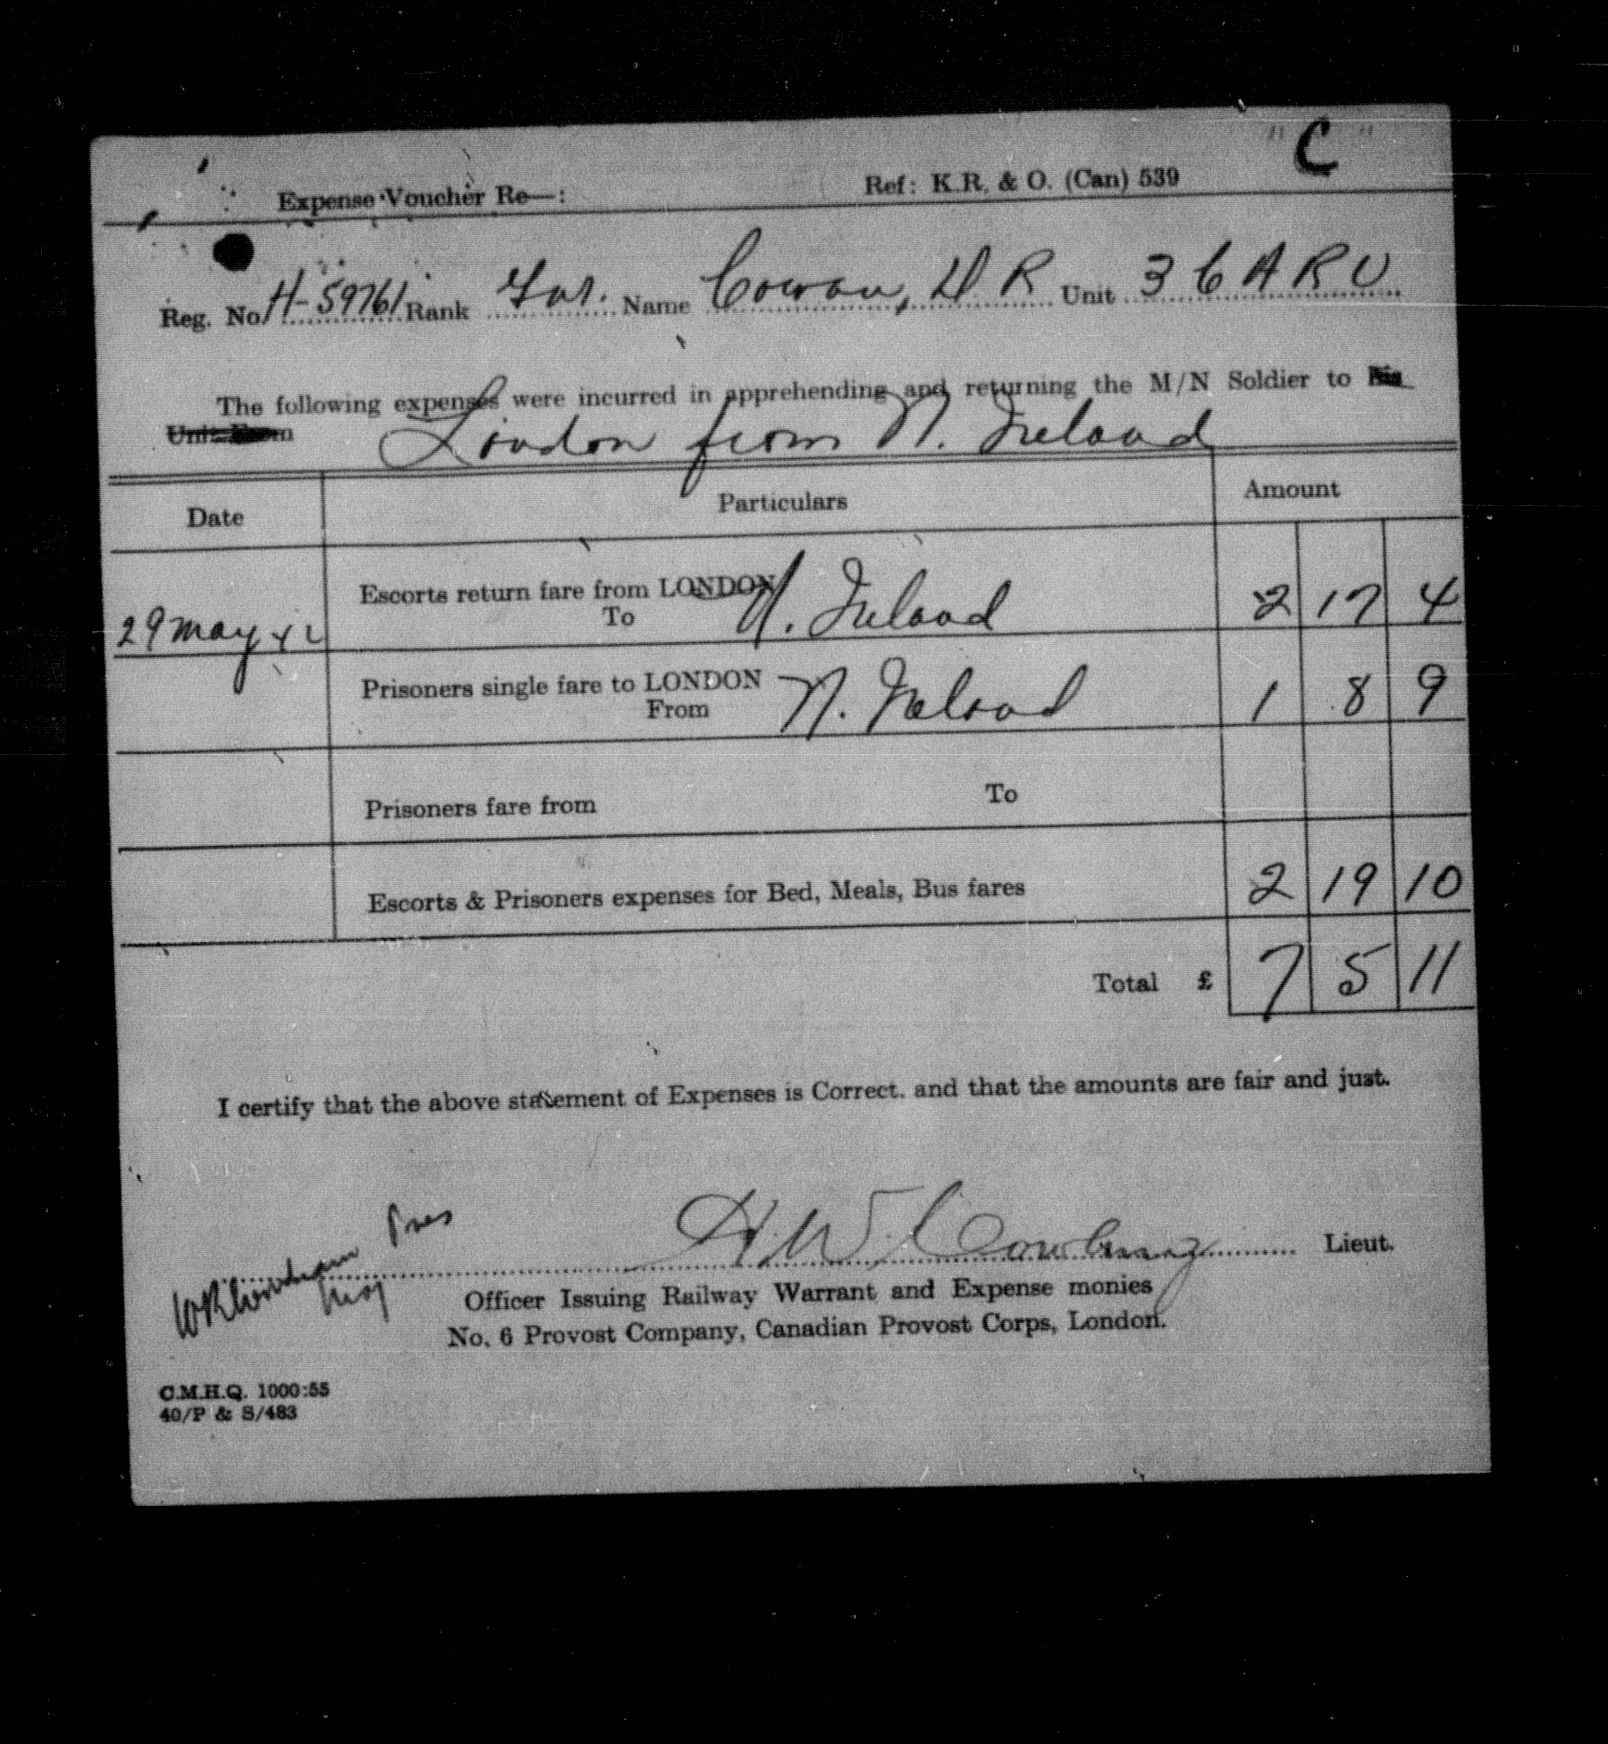 "C"
Expense Voucher Re—: Ref: K.R. & O. (Can) 539
Reg. No. H-59761 Rank Name Cowan, D R Unit 3 C A R U
The following expenses were incurred in apprehending and returning the M/N Soldier to his
Unit From London from N. Ireland
Date Particulars Amount
Escorts return fare from LONDON
29 May 42 To N. Ireland 2 17 4
Prisoners single fare to LONDON
From N. Ireland 1 8 9
Prisoners fare from To
Escorts & Prisoners expenses for Bed, Meals, Bus fares 2 19 10
Total £ 7 5 11
I certify that the above statement of Expenses is Correct. and that the amounts are fair and just.
Pres
Lieut.
Maj
Officer Issuing Railway Warrant and Expense monies
No. 6 Provost Company, Canadian Provost Corps, London.
C.M.H.Q. 1000:55
40/P & S/483